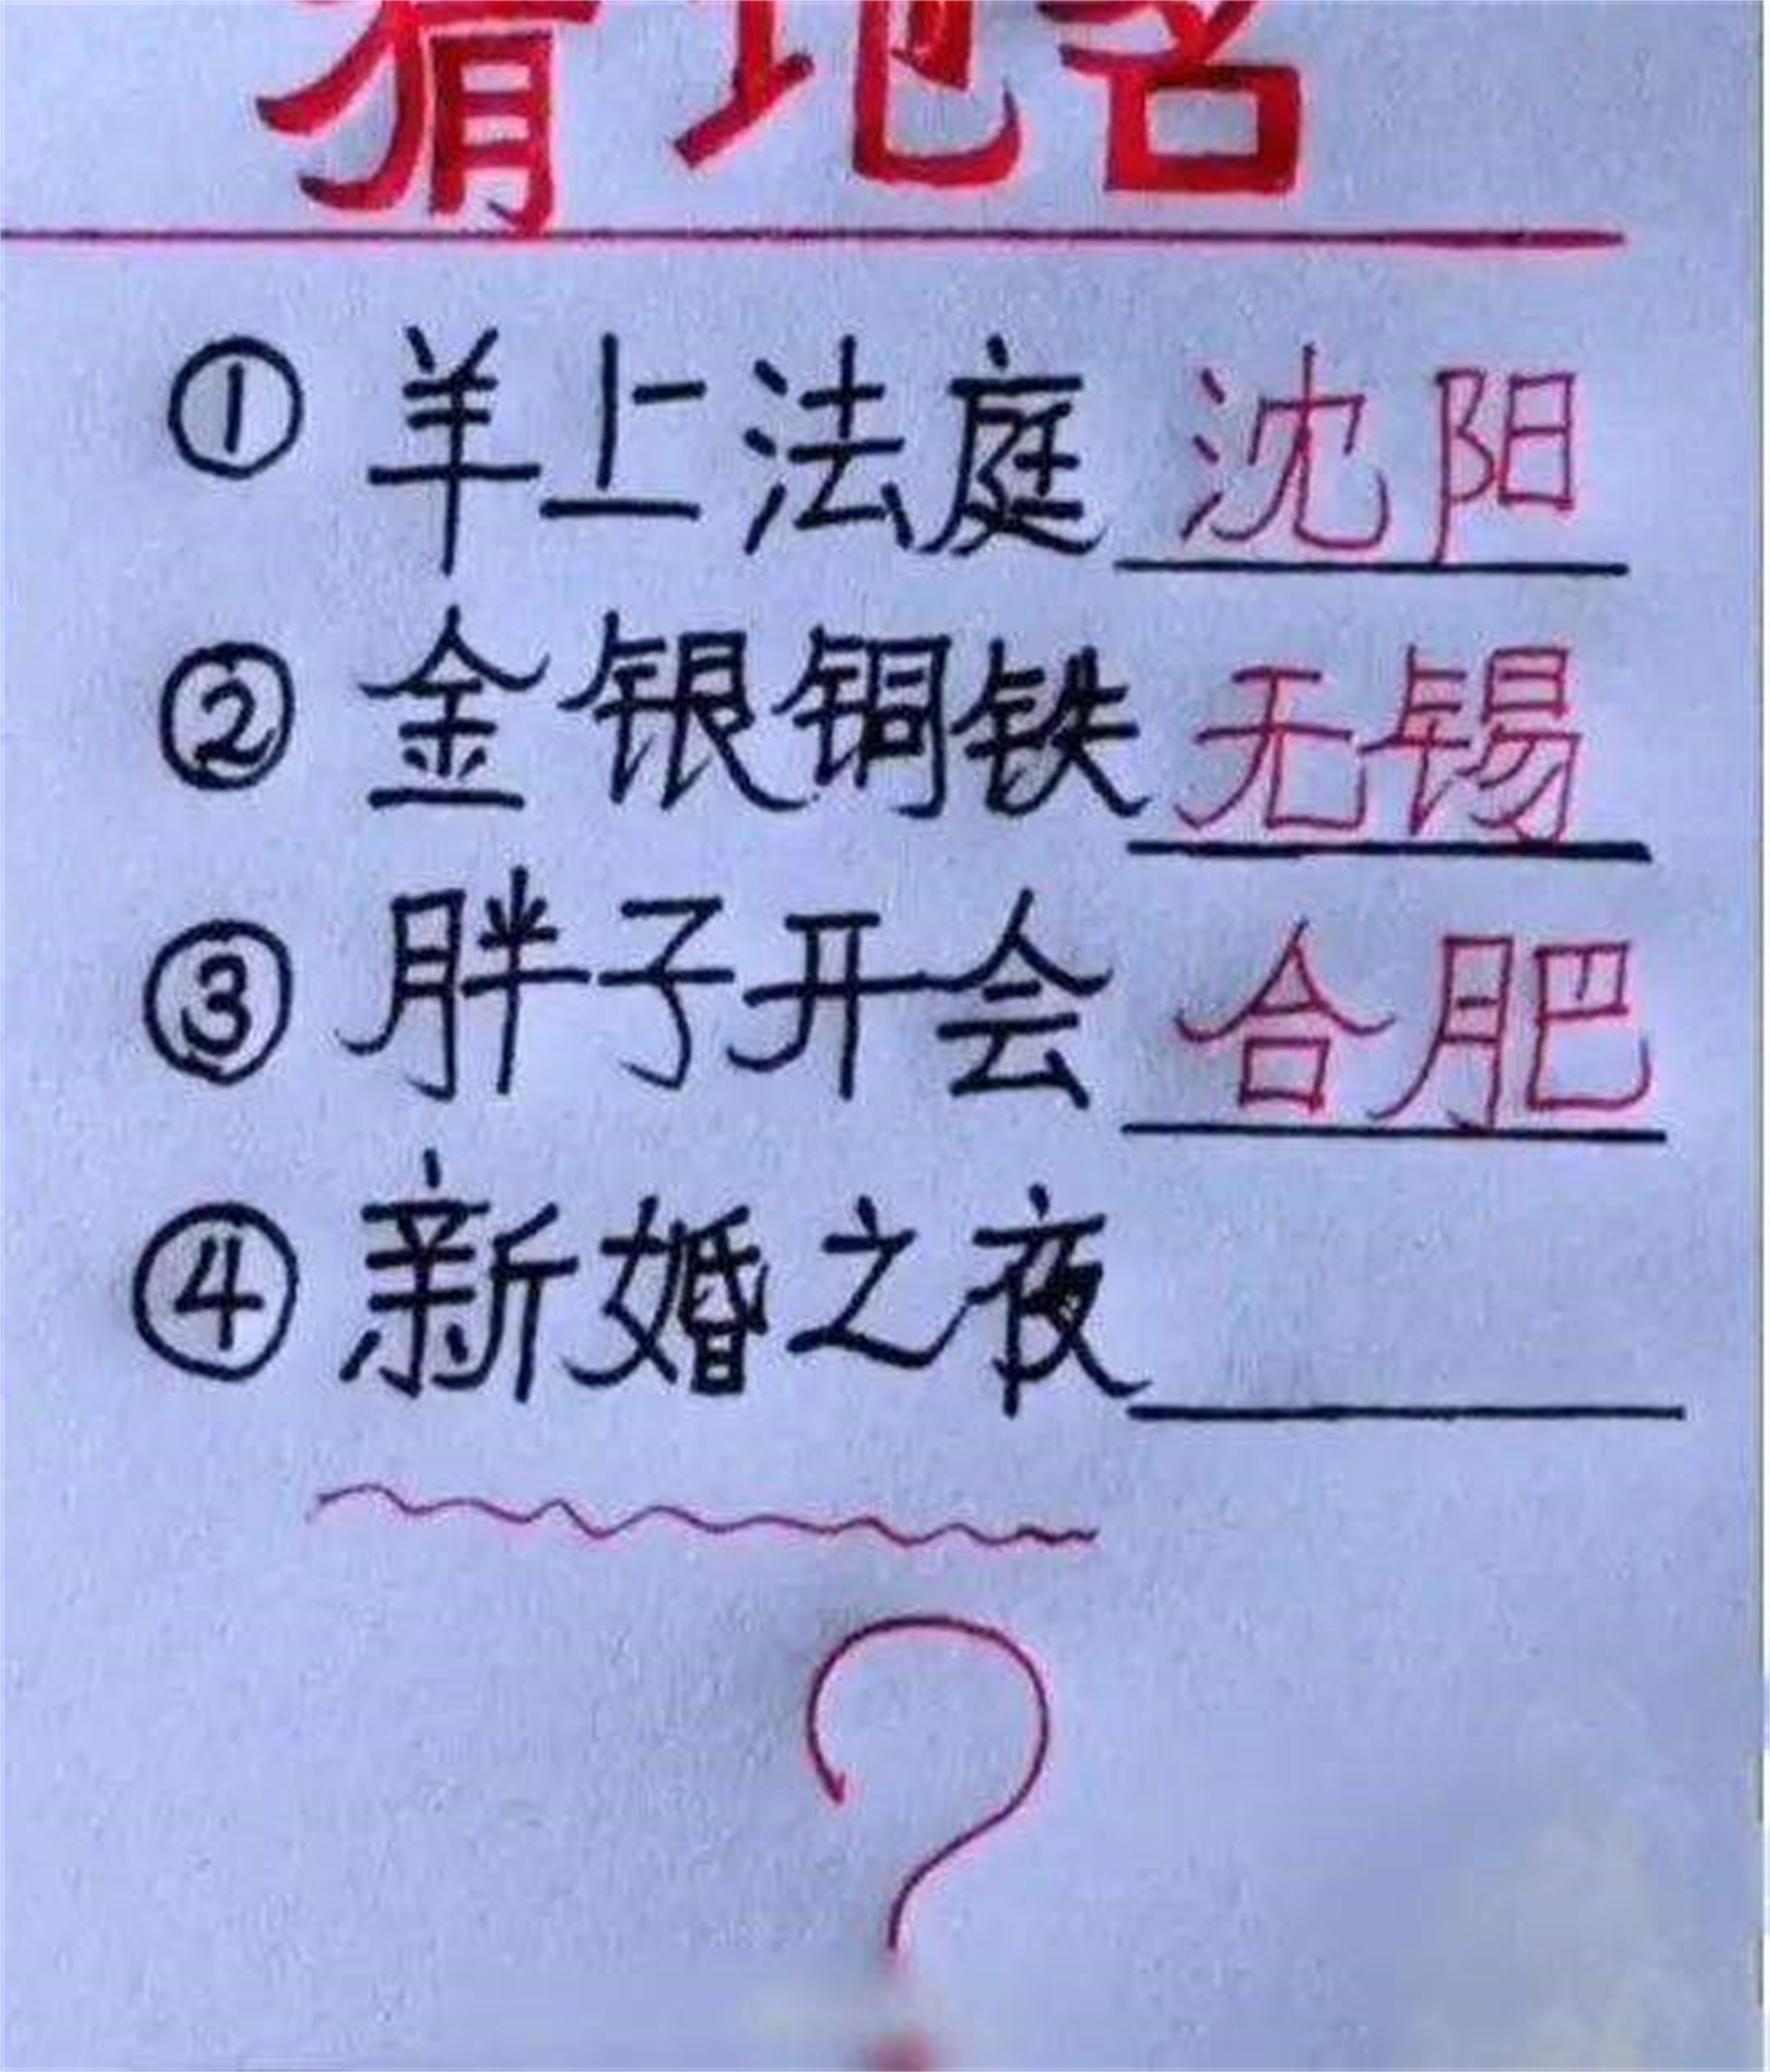 猜地名
① 羊上法庭 沈阳
② 金银铜铁 无锡
③ 胖子开会 合肥
④ 新婚之夜
?